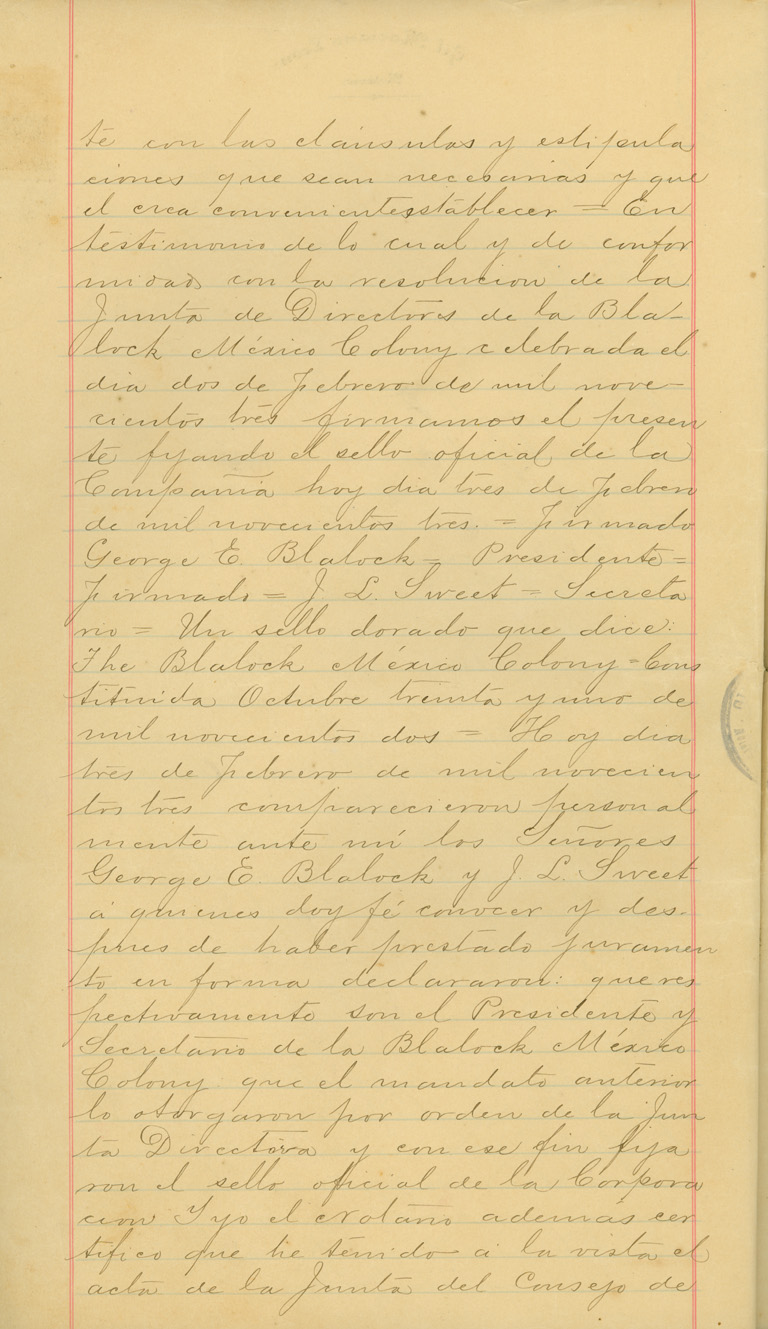 te con las cláusulas y estipula
ciones que sean necesarias y que
el crea convenientes establecer = En
testimonio de lo cual y de confor
midad con la resolucion de la
Junta de Directores de la Bla-
lock México Colony celebrada el
dia dos de Febrero de mil nove-
cientos tres firmamos el presen
te fijando el sello oficial de la
Compañia hoy dia tres de Febrero
de mil novecientos tres. = Firmado
George E. Blalock = Presidente =
Firmado = J. L. Sweet = Secreta
rio = Un sello dorado que dice:
The Blalock México Colony = Cons
tituida Octubre treinta y uno de
mil novecientos dos = Hoy dia
tres de Febrero de mil novecien
tos tres comparecieron personal
mente ante mi los Señores
George E. Blalock y J. L. Sweet
á quienes doy fé conocer y des-
pues de haber prestado juramen
to en forma declararon: que res
pectivamente son el Presidente y
Secretario de la Blalock México
Colony que el mandato anterior
lo otorgaron por orden de la Jun
ta Directora y con ese fin fija
ron el sello oficial de la Corpora
cion Y yo el Notario ademas cer
tifico que he tenido a la vista el
acta de la Junta del Consejo de